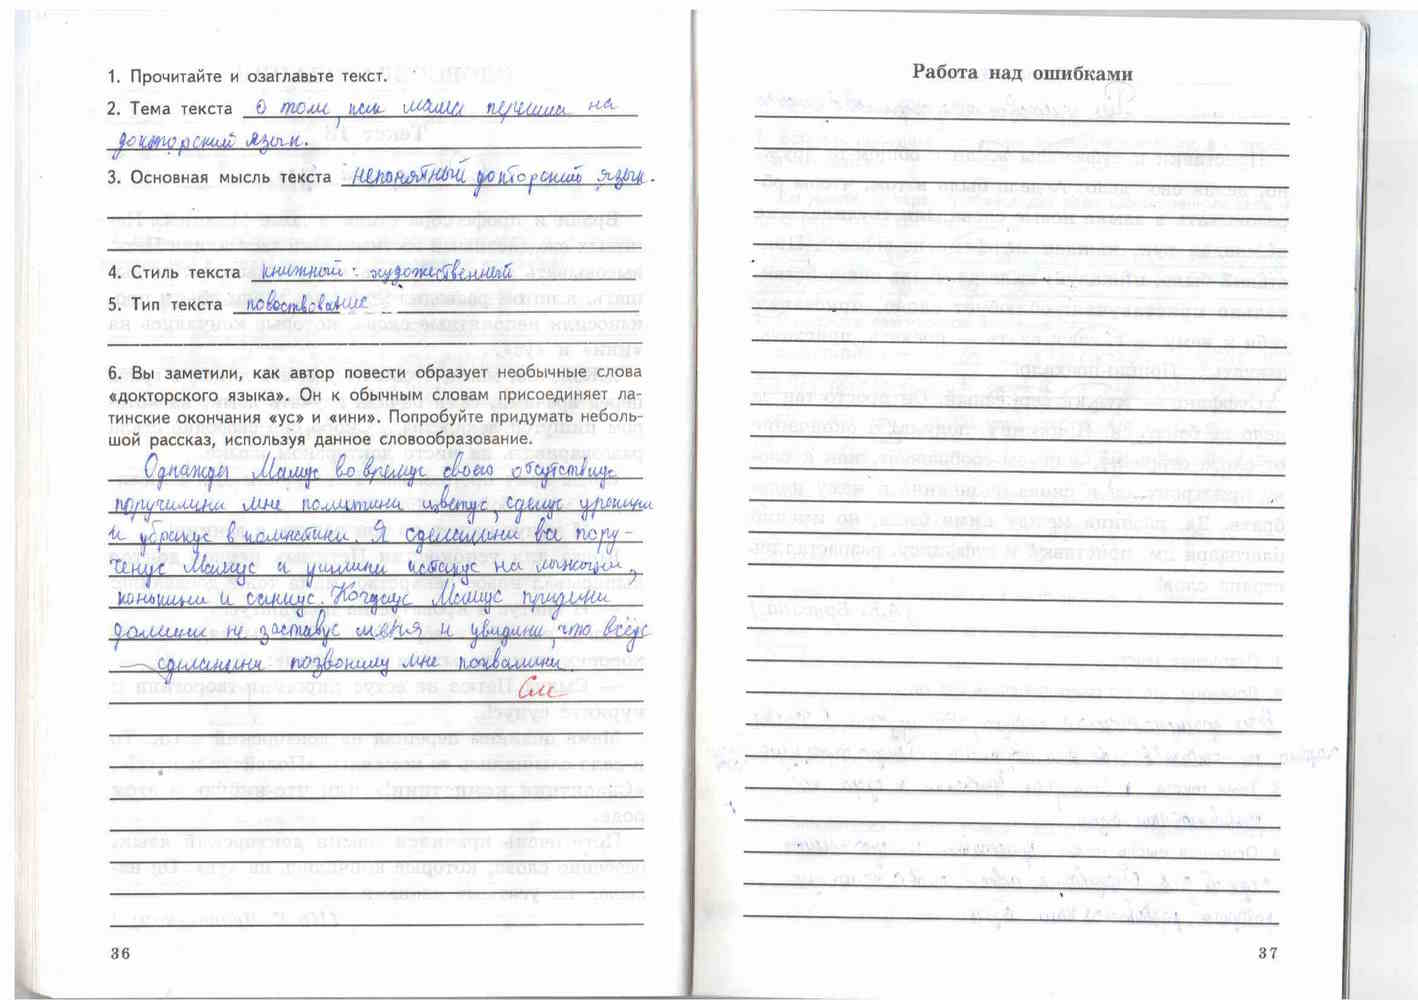 1. Прочитайте и озаглавьте текст.
2. Тема текста о том, как мама перешла на
докторский язык.
3. Основная мысль текста непонятный докторский язык.
4. Стиль текста книжный: художественный
5. Тип текста повоствование
6. Вы заметили, как автор повести образует необычные слова
«докторского языка». Он к обычным словам присоединяет ла-
тинские окончания «ус» и «ини». Попробуйте придумать неболь-
шой рассказ, используя данное словообразование.
Однажды Мамус во времус своего отсутствиус
поручилини мне политини цветус, сделус урокини
и убракус в комнатини. Я сделалини все пору-
ченус Мамус и ушлини катакус на лыжини,
конькини и санкус. Когдаус Мамус пришлини
домини не заставус меня и увидини, что всёус
сделанини позвониму мне похвалини.
См
36
Работа над ошибками
37